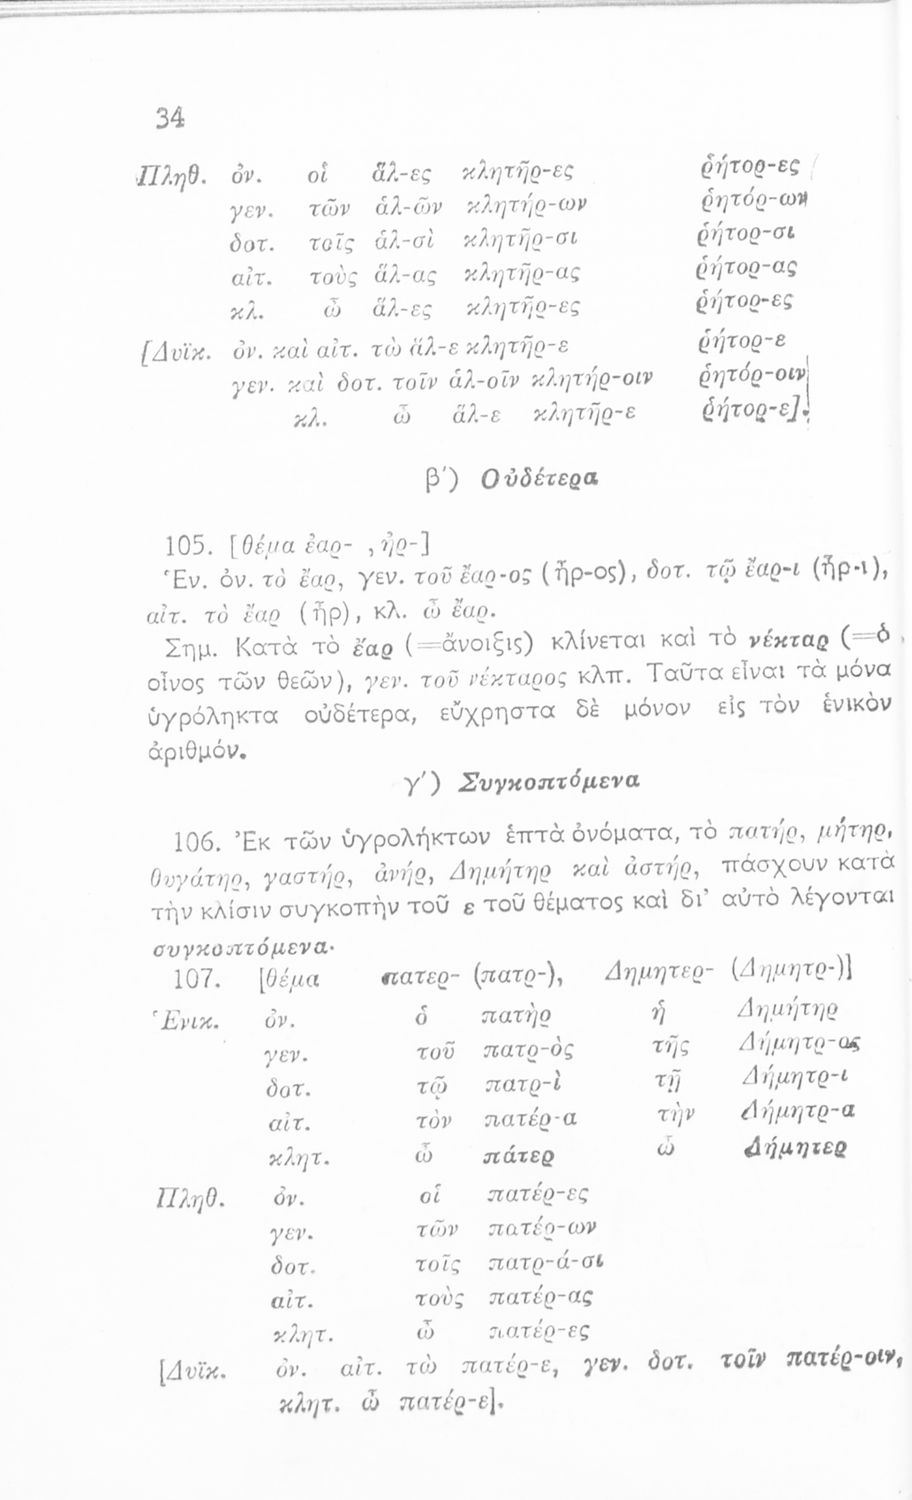 34
Πληθ. ὀν. οἱ ἅλ-ες κλητῆρ-ες ῥήτορ-ες
γεν. τῶν ἁλ-ῶν κλητήρ-ων ῥητόρ-ων
δοτ. τοῖς ἁλ-σὶ κλητῆρ-σι ῥήτορ-σι
αἰτ. τοὺς ἅλ-ας κλητῆρ-ας ῥήτορ-ας
κλ. ὦ ἅλ-ες κλητῆρ-ες ῥήτορ-ες
[Δυϊκ. ὀν. καὶ αἰτ. τὼ ἅλ-ε κλητῆρ-ε ῥήτορ-ε
γεν. καὶ δοτ. τοῖν ἁλ-οῖν κλητήρ-οιν ῥητόρ-οιν
κλ. ὦ ἅλ-ε κλητῆρ-ε ῥήτορ-ε].
β') Οὐδέτερα
105. [θέμα ἐαρ- , ἠρ-]
Ἑν. ὀν. τὸ ἔαρ, γεν. τοῦ ἔαρ-ος (ἦρ-ος), δοτ. τῷ ἔαρ-ι (ἦρ-ι),
αἰτ. τὸ ἔαρ (ἦρ), κλ. ὦ ἔαρ.
Σημ. Κατὰ τὸ ἔαρ (=ἄνοιξις) κλίνεται καὶ τὸ νέκταρ (=ὁ
οἶνος τῶν θεῶν), γεν. τοῦ νέκταρος κλπ. Ταῦτα εἶναι τὰ μόνα
ὑγρόληκτα οὐδέτερα, εὔχρηστα δὲ μόνον εἰς τὸν ἑνικὸν
ἀριθμόν.
γ') Συγκοπτόμενα
106. Ἐκ τῶν ὑγρολήκτων ἑπτὰ ὀνόματα, τὸ πατήρ, μήτηρ,
θυγάτηρ, γαστήρ, ἀνήρ, Δημήτηρ καὶ ἀστήρ, πάσχουν κατὰ
τὴν κλίσιν συγκοπὴν τοῦ ε τοῦ θέματος καὶ δι' αὐτὸ λέγονται
συγκοπτόμενα·
107. [θέμα πατερ- (πατρ-), Δημητερ- (Δημητρ-)]
Ἑνικ. ὀν. ὁ πατὴρ ἡ Δημήτηρ
γεν. τοῦ πατρ-ὸς τῆς Δήμητρ-ος
δοτ. τῷ πατρ-ὶ τῇ Δήμητρ-ι
αἰτ. τὸν πατέρ-α τὴν Δήμητρ-α
κλητ. ὦ πάτερ ὦ Δήμητερ
Πληθ. ὀν. οἱ πατέρ-ες
γεν. τῶν πατέρ-ων
δοτ. τοῖς πατρ-ά-σι
αἰτ. τοὺς πατέρ-ας
κλητ. ὦ πατέρ-ες
[Δυϊκ. ὀν. αἰτ. τὼ πατέρ-ε, γεν. δοτ. τοῖν πατέρ-οιν,
κλητ. ὦ πατέρ-ε].